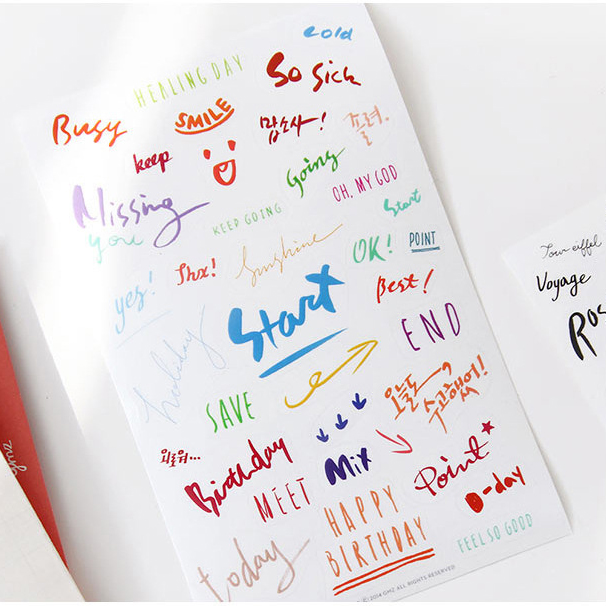 cold
HEALING DAY
So Sick
Busy
SMILE
맙소사!
졸려.
keep
Going
OH, MY GOD
Missing
you
KEEP GOING
Start
yes!
Thx!
Sunshine
OK!
POINT
Best!
Start
END
holiday
SAVE
오늘도
수고했어!
외로워...
Birthday
Mix
Point
MEET
D-day
HAPPY
BIRTHDAY
FEEL SO GOOD
today
© 2014 GMZ ALL RIGHTS RESERVED
Tour eiffel
Voyage
gmz